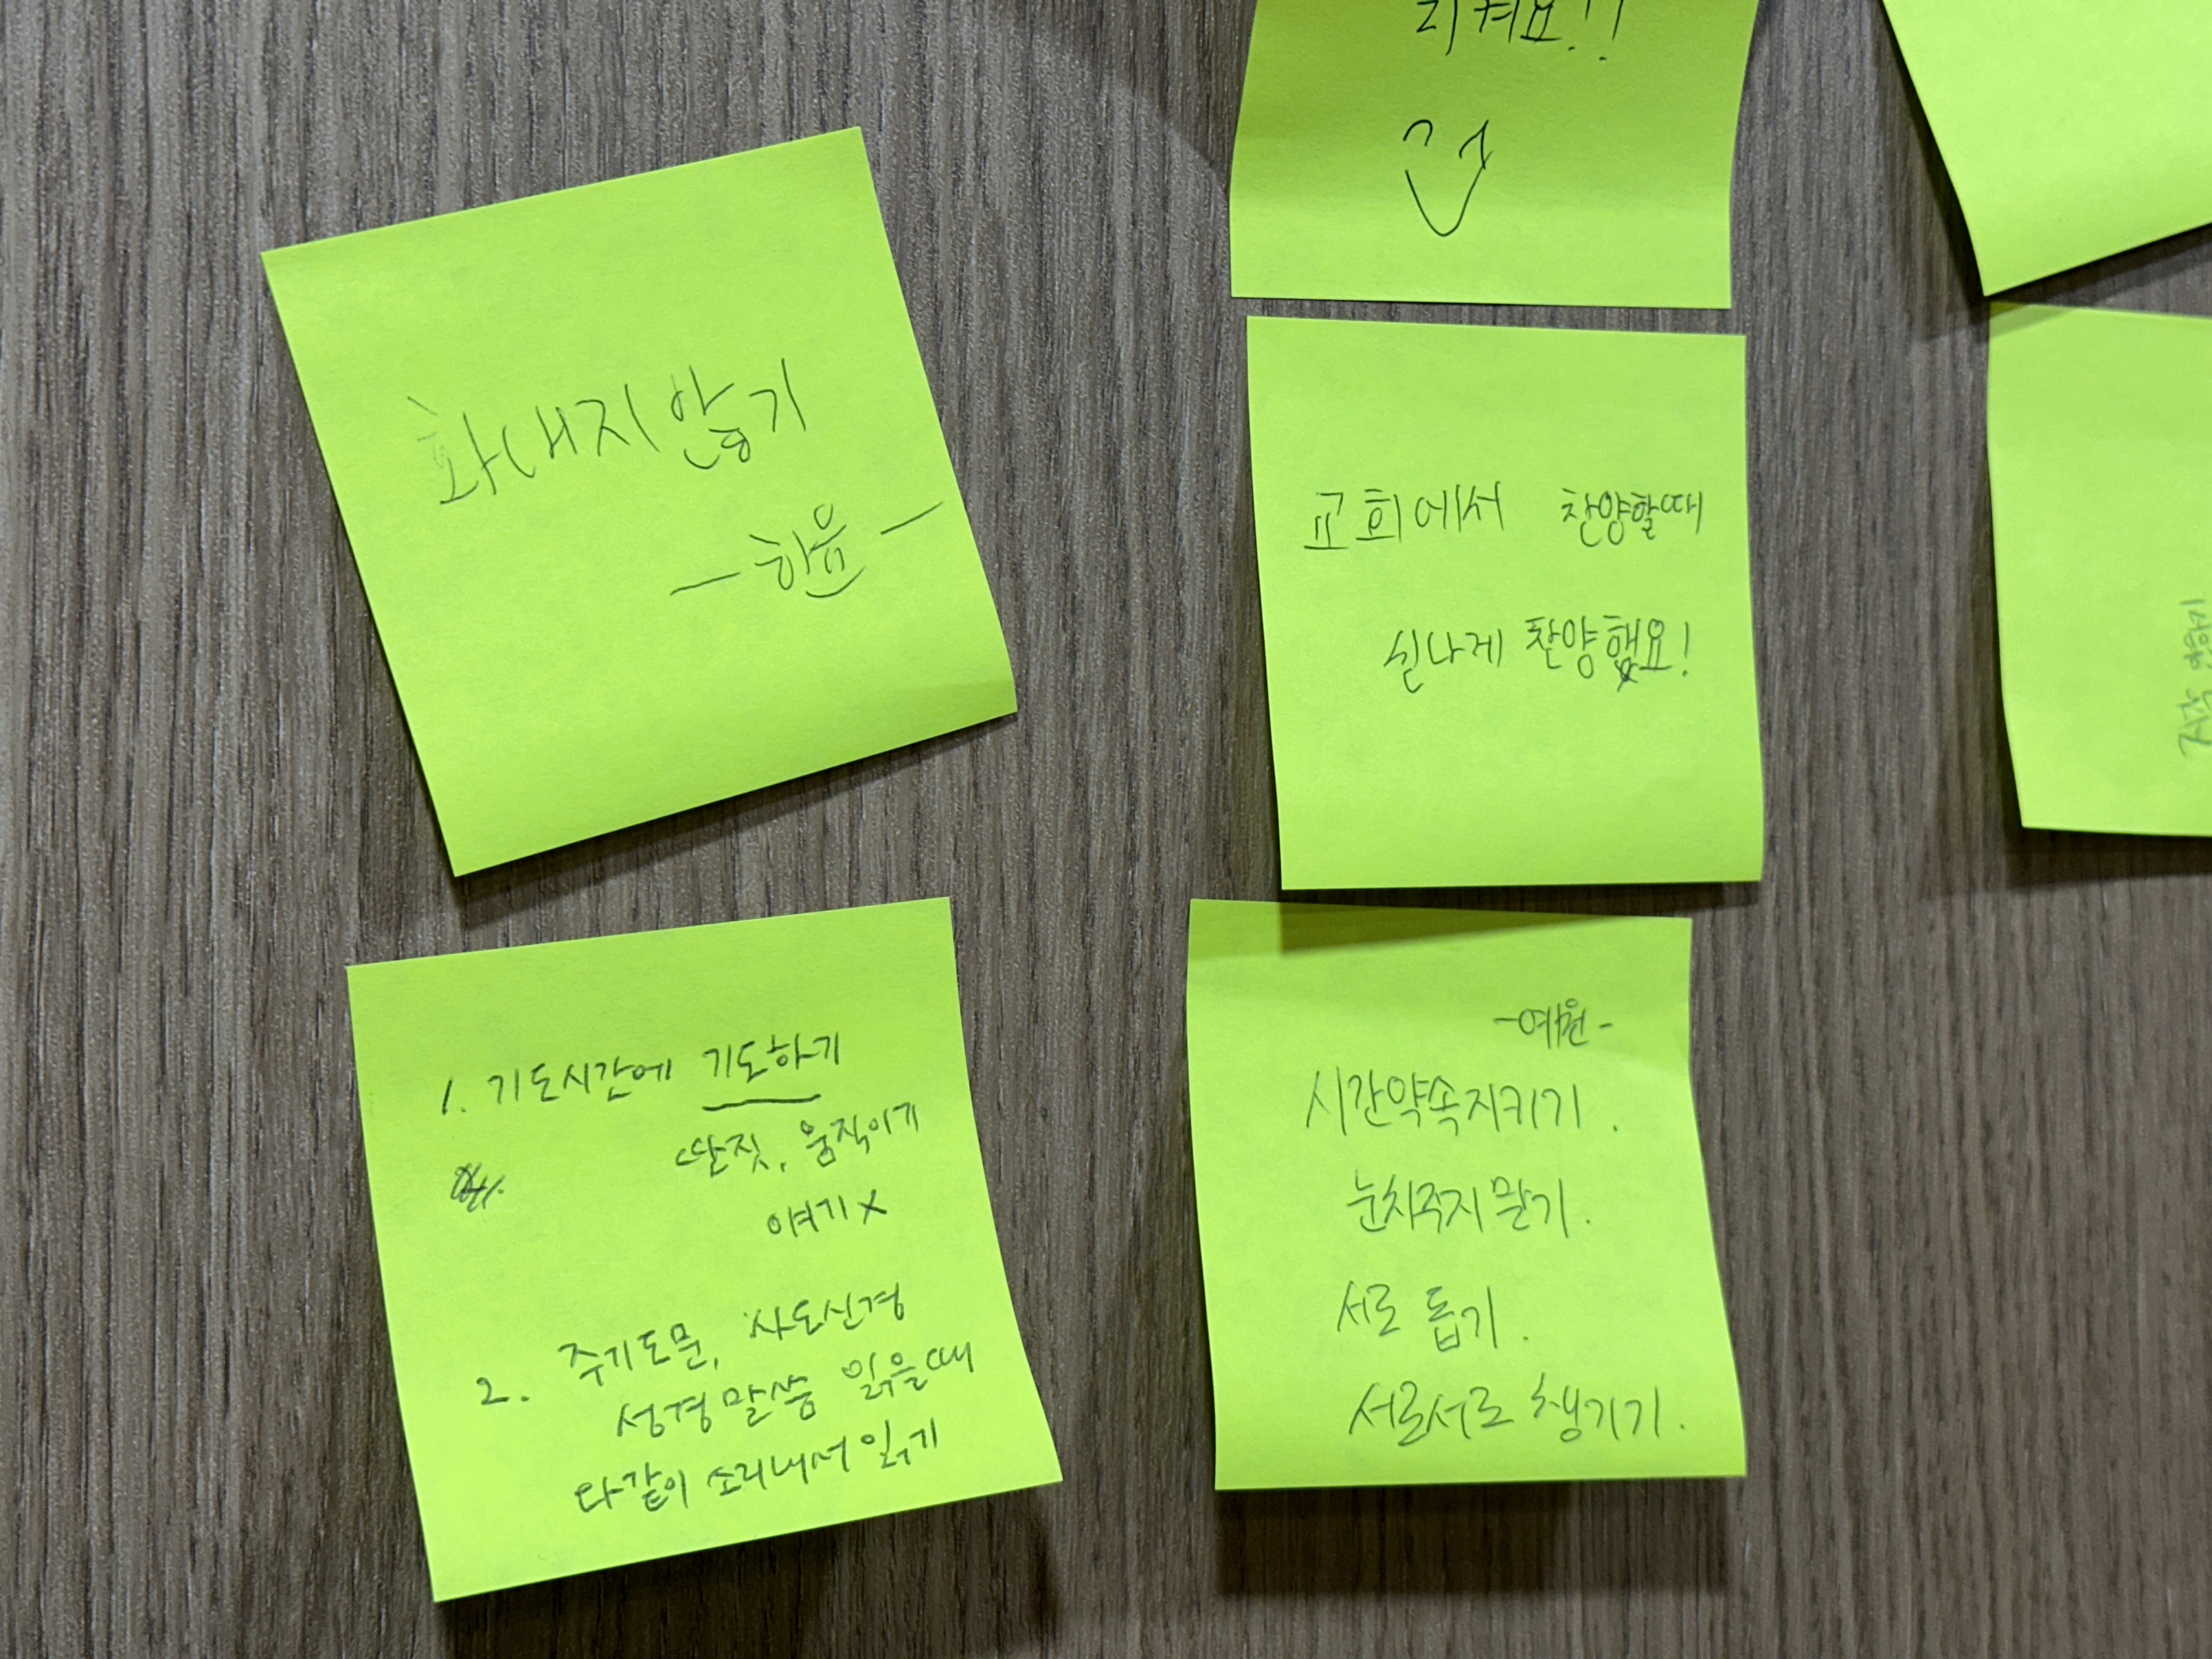 화내지않기
-하윤-
리켜요!!
교회에서 찬양할때
신나게 찬양했요!
1. 기도시간에 기도하기
딴짓, 움직이기
이야기 X
2. 주기도문, 사도신경
성경말씀 읽을때
다같이 소리내서 읽기
-예원-
시간약속지키기.
눈치주지 말기.
서로 돕기.
서로서로 챙기기.